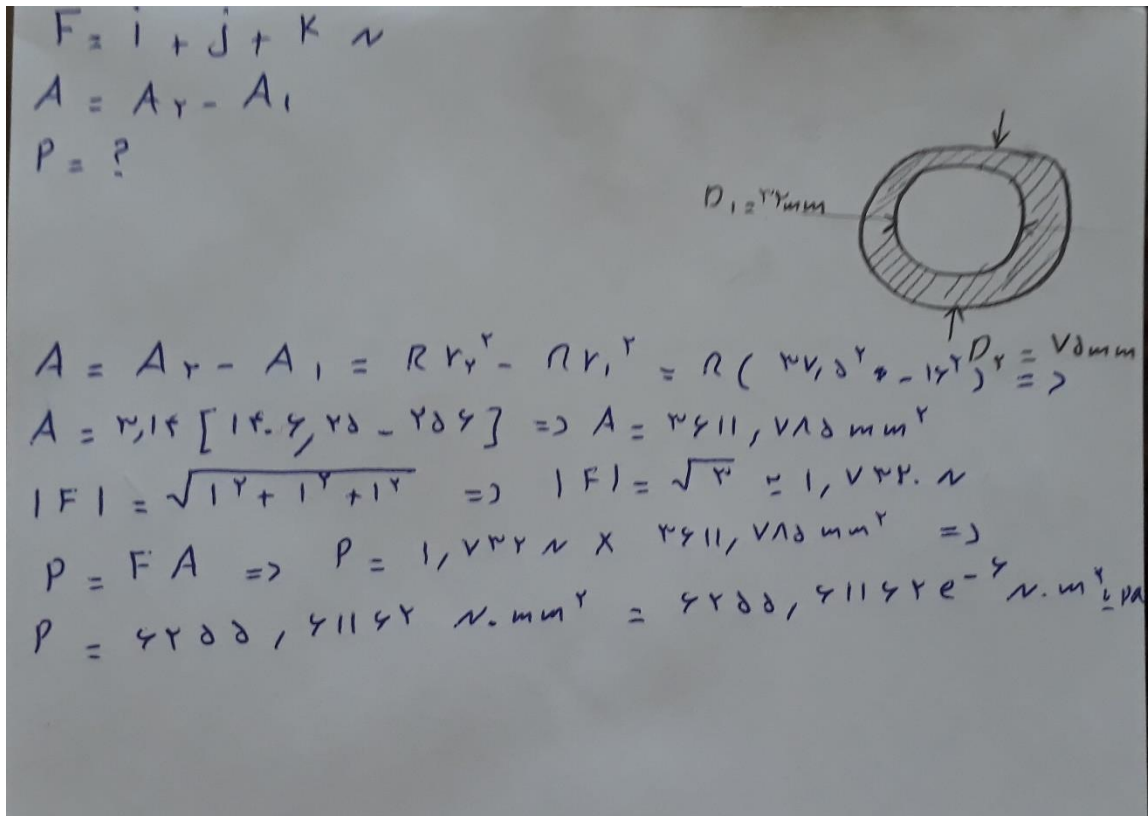 F = i + j + K N
A = A۲ - A۱
P = ?
D۱ = ۳۲mm
D۲ = ۷۵mm
A = A۲ - A۱ = π r۲^۲ - π r۱^۲ = π ( ۳۷,۵^۲ - ۱۶^۲ ) =>
A = ۳,۱۴ [ ۱۴۰۶,۲۵ - ۲۵۶ ] => A = ۳۶۱۱,۷۸۵ mm^۲
|F| = √۱^۲ + ۱^۲ + ۱^۲ => |F| = √۳ ≃ ۱,۷۳۲. N
P = F A => P = ۱,۷۳۲ N × ۳۶۱۱,۷۸۵ mm^۲ =>
P = ۶۲۵۵,۶۱۱۶۲ N. mm^۲ = ۶۲۵۵,۶۱۱۶۲e^-۶ N. m^۲ = pa